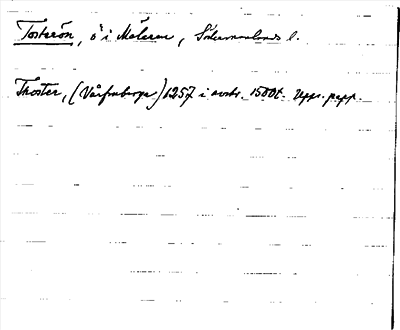 Tosterön, ö i Mälaren, Södermanlands l.
Thoster, (Vårfruberga) 1257 i avskr. 1500t. Upps. papp.